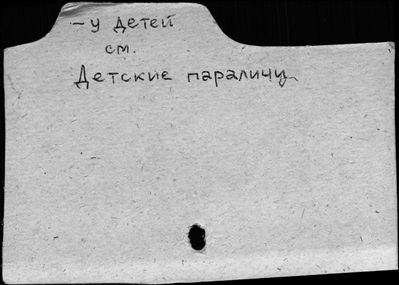 — у детей
см.
Детские параличи